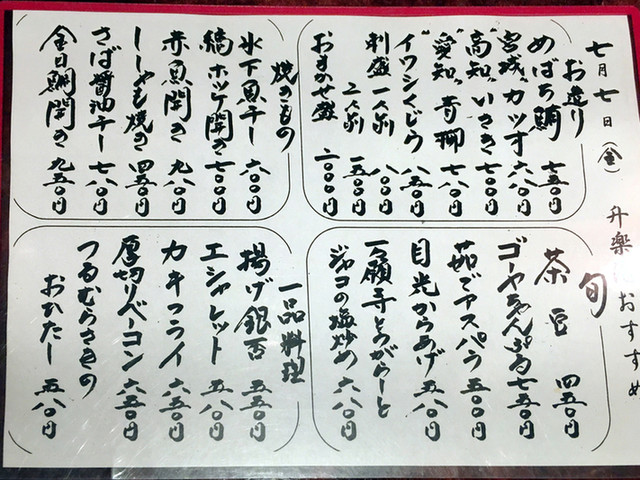 七月七日(金) 升楽 おすすめ
お造り
めばち鮪 七五〇円
"宮城"カツオ 六八〇円
"高知"いさき 七〇〇円
"愛知"青柳 七八〇円
イワシくじら 八五〇円
刺盛一人前 八〇〇円
二人前 一五〇〇円
おまかせ盛 二〇〇〇円
焼きもの
氷下魚干し 六〇〇円
縞ホッケ開き 七〇〇円
赤魚開き 九八〇円
ししゃも焼き 四五〇円
さば醤油干し 七八〇円
金目鯛開き 九五〇円
旬
茶豆 四五〇円
ゴーヤちゃんぷる 七五〇円
茹でアスパラ 五〇〇円
目光からあげ 五八〇円
万願寺とうがらしと
ジャコの塩炒め 六八〇円
一品料理
揚げ銀杏 五五〇円
エシャレット 五八〇円
カキフライ 六五〇円
厚切りベーコン 六五〇円
つるむらさきの
おひたし 五八〇円